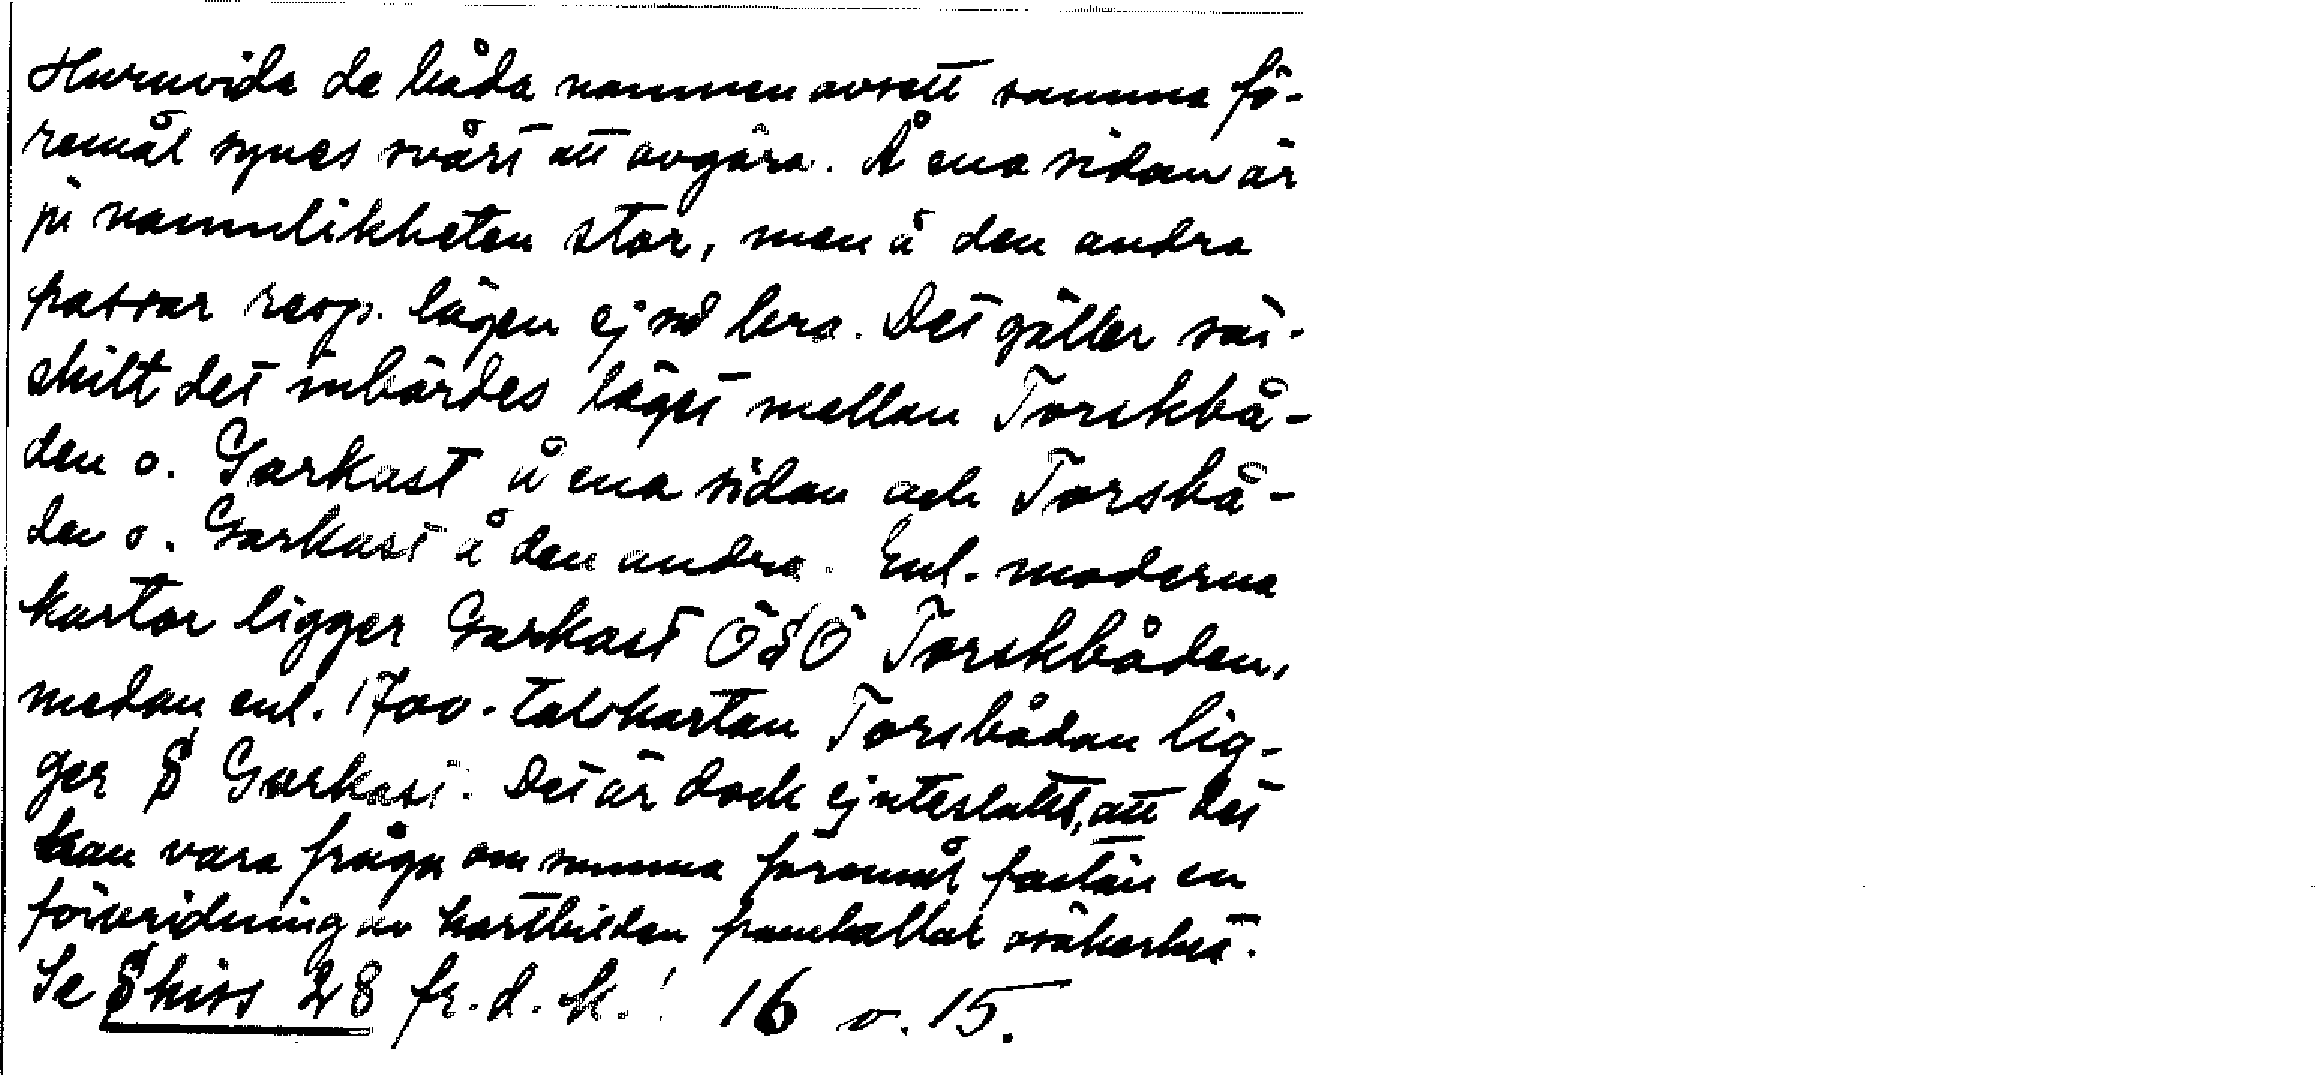 Huruvida de båda namnen avsett samma fö-
remål synes svårt att avgöra. Å ena sidan är
ju namnlikheten stor, men å den andra
passar resp. lägen ej så bra. Det gäller sär-
skilt det inbördes läget mellan Torskbå-
den o. Garkast å ena sidan och Torsbå-
den o. Garkast å den andra. Enl. moderna
kartor ligger Garkast ÖSÖ Torskbåden,
medan enl. 1700-talskartan Torsbådan lig-
ger S Garkast. Det är dock ej uteslutet, att det
kan vara fråga om samma föremål fastän en
förvridning av kartbilden framkallat osäkerhet.
Se Skiss 28 fr. d. k.! 16 o. 15.